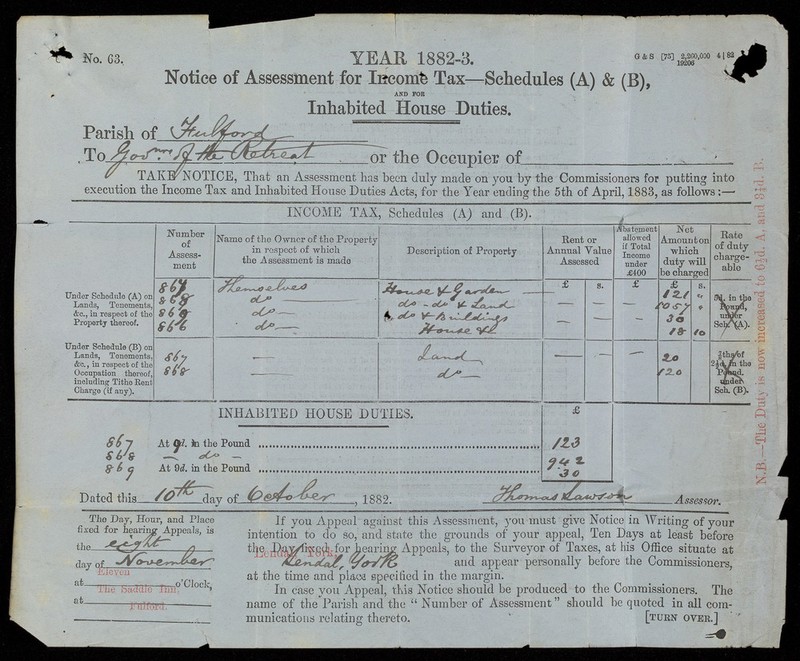 No. 63.
YEAR 1882-3.
G & S [75] 2,200,000 4 | 82
19206
Notice of Assessment for Income Tax—Schedules (A) & (B),
AND FOR
Inhabited House Duties.
Parish of Fulford
To Govnrs of the Retreat or the Occupier of
TAKE NOTICE, That an Assessment has been duly made on you by the Commissioners for putting into
execution the Income Tax and Inhabited House Duties Acts, for the Year ending the 5th of April, 1883, as follows:—
INCOME TAX, Schedules (A) and (B).
Number of Assessment
Name of the Owner of the Property in respect of which the Assessment is made
Description of Property
Rent or Annual Value Assessed
Abatement allowed if Total Income under £400
Net Amount on which duty will be charged
Rate of duty chargeable
£ s. £ £ s.
Under Schedule (A) on Lands, Tenements, &c., in respect of the Property thereof.
867 Themselves House & Garden — — — 121 "
868 do do - do & Land 1057 "
869 do— do & Buildings — — — 30
866 do— House &c 18 10
5d. in the Pound, under Sch. (A).
Under Schedule (B) on Lands, Tenements, &c., in respect of the Occupation thereof, including Tithe Rent Charge (if any).
867 — Land — — — 20
868 — do— 120
2½d. in the Pound. under Sch. (B).
INHABITED HOUSE DUTIES.
£
867 At 9d. in the Pound 123
868 — do — 942
869 At 9d. in the Pound 30
Dated this 10th day of October, 1882.
Thomas Lawson Assessor.
The Day, Hour, and Place
fixed for hearing Appeals, is
the eight
day of November
at Eleven o'Clock,
at The Saddle Inn,
Fulford.
If you Appeal against this Assessment, you must give Notice in Writing of your
intention to do so, and state the grounds of your appeal, Ten Days at least before
the Day fixed for hearing Appeals, to the Surveyor of Taxes, at his Office situate at
Lendal, York and appear personally before the Commissioners,
at the time and place specified in the margin.
In case you Appeal, this Notice should be produced to the Commissioners. The
name of the Parish and the "Number of Assessment" should be quoted in all com-
munications relating thereto. [TURN OVER.]
N.B.—The Duty is now increased to 6½d. A. and 3¼d. B.